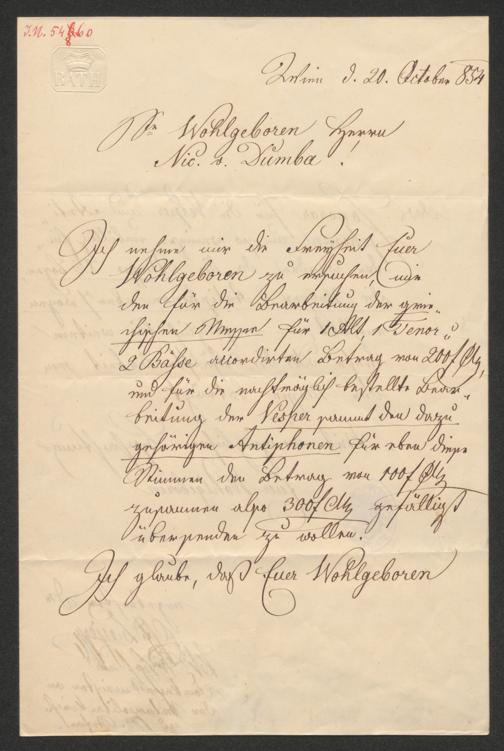 I.N. 54860
BATH
Wien d. 20. October 854
Sr Wohlgeboren Herrn
Nic. v. Dumba.
Ich nehme mir die Freyheit Euer
Wohlgeboren zu ersuchen, mir
den für die Bearbeitung der grie-
chischen Messe für 1 Alt, 1 Tenor u
2 Bässe accordirten Betrag von 200f CMz,
und für die nachträglich bestellte Bear-
beitung der Vesper sammt den dazu
gehörigen Antiphonen für eben diese
Stimmen den Betrag von 100f CMz
zusammen also 300f CMz gefälligst
übersenden zu wollen.
Ich glaube, daß Euer Wohlgeboren